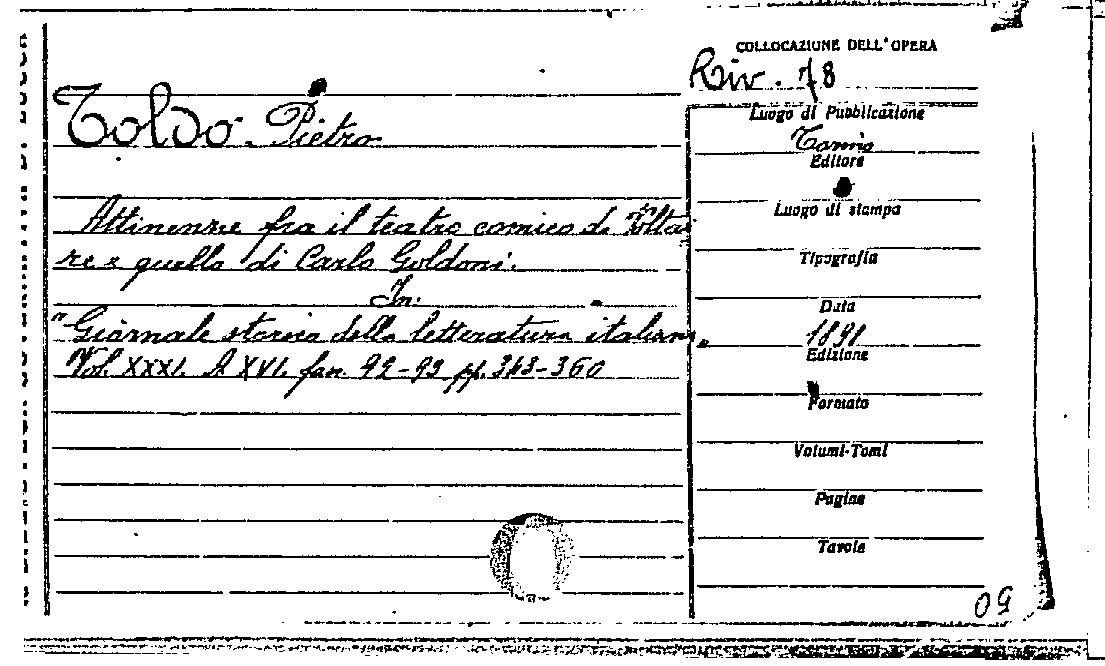 COLLOCAZIONE DELL'OPERA
Riv. 78
Toldo. Pietro
Attinenze fra il teatro comico di Voltai
re e quello di Carlo Goldoni.
In:
"Giornale storico della letteratura italiana"
Vol. XXXI. A XVI. fasc. 92-93 pp. 343-360
Luogo di Pubblicazione
Torino
Editore
Luogo di stampa
Tipografia
Data
1891
Edizione
Formato
Volumi-Tomi
Pagine
Tavole